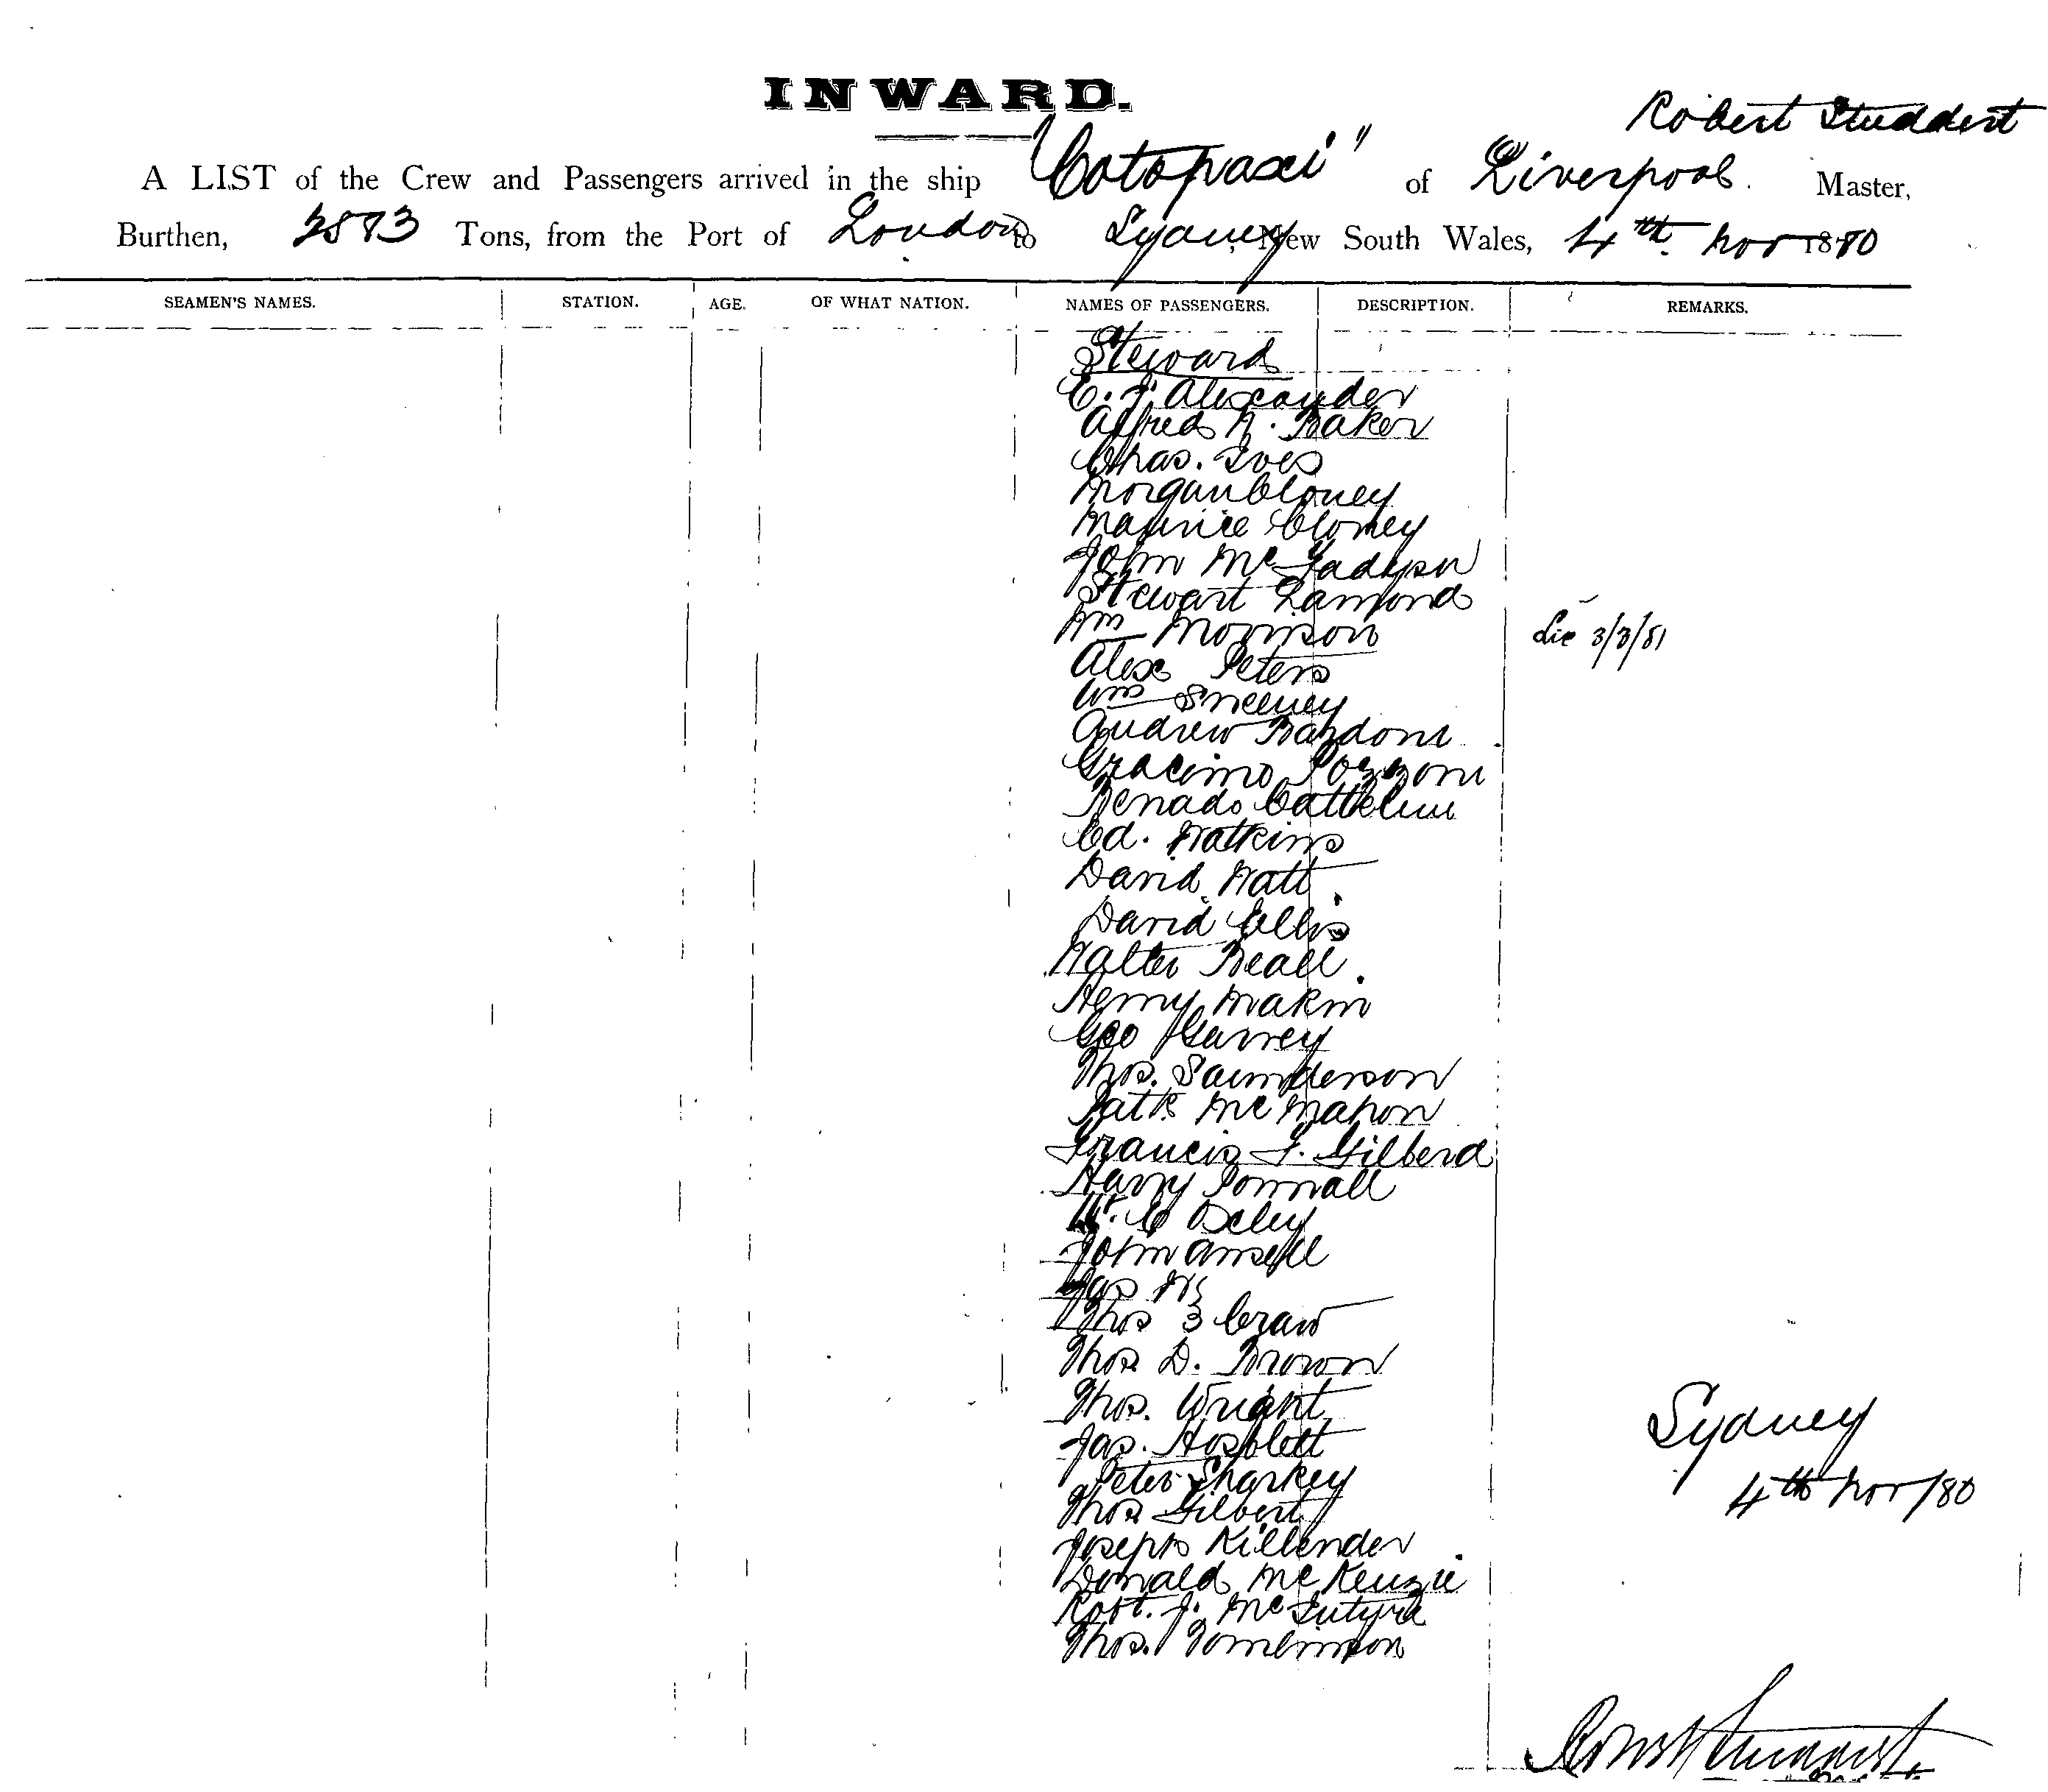 INWARD.
Robert Studdert
A LIST of the Crew and Passengers arrived in the ship "Cotopaxi" of Liverpool. Master,
Burthen, 2583 Tons, from the Port of London to Sydney, New South Wales, 4th Nov 1880
SEAMEN'S NAMES. STATION. AGE. OF WHAT NATION. NAMES OF PASSENGERS. DESCRIPTION. REMARKS.
Steward
C. J. Alexander
Alfred R. Baker
Chas. Ives
Morgan Cloney
Maurice Cloney
John Mc Fadyen
Stewart Lamond
Wm Morrison 3/3/81
Alex Peters
Wm Sweeney
Andrew Bardoni
Pozzoni
Cattelini
Ed. Watkins
David Watt
David Ellis
Walter Beall
Henry Makin
Geo Garvey
Thos. Saunderson
Patk Mc Mahon
Francis F. Gilberd
Harry Pownall
W. C Oxley
John Ansell
Jas
Thos Craw
Thos D. Brown
Thos. Wright
Jas. Hosplett
Sydney
Peter Sharkey
4th Nov/80
Thos Gilbert
Joseph Killender
Donald Mc Kenzie
Robt. J. Mc Intyre
Thos. Tomlinson